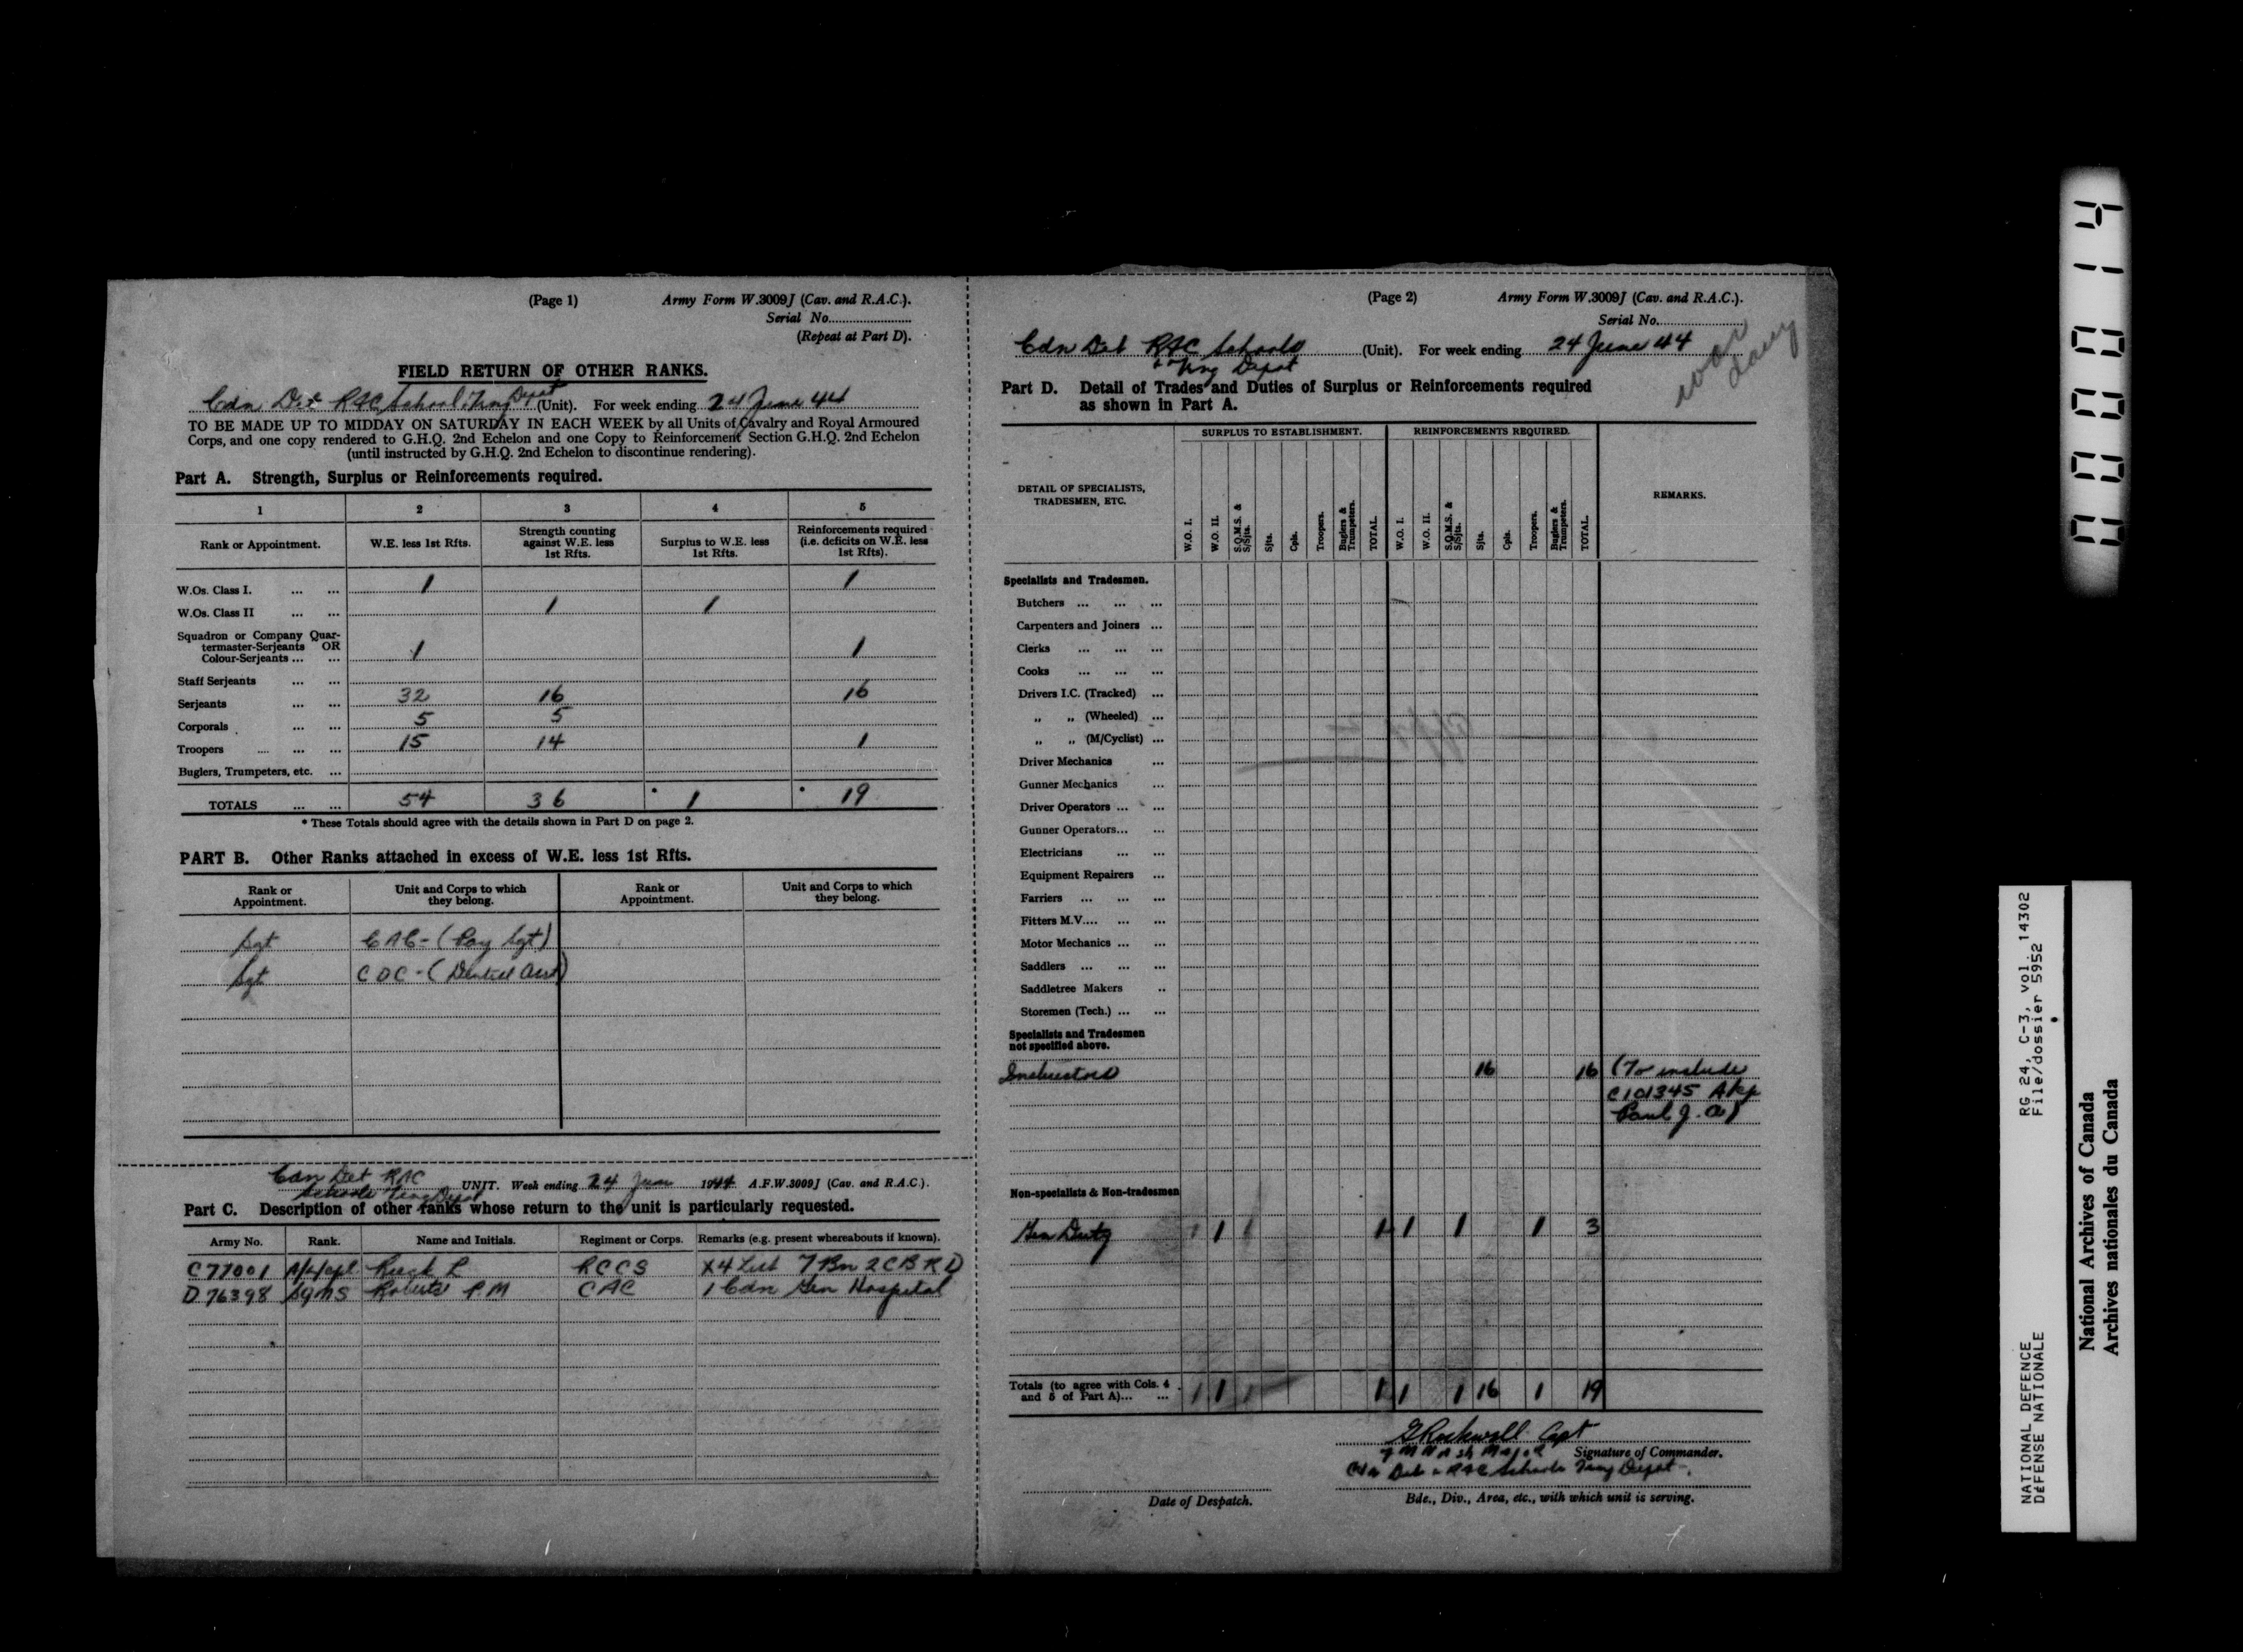 (Page 1) Army Form W.3009J (Cav. and R.A.C.).
Serial No.
(Repeat at Part D).
FIELD RETURN OF OTHER RANKS.
Cdn Det RAC School Trng Depot (Unit). For week ending 24 June 44
TO BE MADE UP TO MIDDAY ON SATURDAY IN EACH WEEK by all Units of Cavalry and Royal Armoured
Corps, and one copy rendered to G.H.Q. 2nd Echelon and one Copy to Reinforcement Section G.H.Q. 2nd Echelon
(until instructed by G.H.Q. 2nd Echelon to discontinue rendering).
Part A. Strength, Surplus or Reinforcements required.
1 2 3 4 5
Rank or Appointment. W.E. less 1st Rfts. Strength counting against W.E. less 1st Rfts. Surplus to W.E. less 1st Rfts. Reinforcements required (i.e. deficits on W.E. less 1st Rfts).
W.Os. Class I. ... ... 1 1
W.Os. Class II ... ... 1 1
Squadron or Company Quar-
termaster-Serjeants OR
Colour-Serjeants ... ... 1 1
Staff Serjeants ... ...
Serjeants ... ... 32 16 16
Corporals ... ... 5 5
Troopers ... ... ... 15 14 1
Buglers, Trumpeters, etc. ...
TOTALS ... ... 54 36 * 1 * 19
* These Totals should agree with the details shown in Part D on page 2.
PART B. Other Ranks attached in excess of W.E. less 1st Rfts.
Rank or Appointment. Unit and Corps to which they belong. Rank or Appointment. Unit and Corps to which they belong.
Sgt CAC - (Pay Sgt)
Sgt CDC - (Dental Asst)
Cdn Det RAC
Schools Trng Depot UNIT. Week ending 24 June 1944 A.F.W.3009J (Cav. and R.A.C.).
Part C. Description of other ranks whose return to the unit is particularly requested.
Army No. Rank. Name and Initials. Regiment or Corps. Remarks (e.g. present whereabouts if known).
C77001 A/L/Cpl R RCCS X4 List 7 Bn 2 CBRD
D76398 SQMS Roberts P M CAC 1 Cdn Gen Hospital
(Page 2) Army Form W.3009J (Cav. and R.A.C.).
Serial No.
Cdn Det RAC Schools (Unit). For week ending 24 June 44
& Trng Depot
Part D. Detail of Trades and Duties of Surplus or Reinforcements required
as shown in Part A.
SURPLUS TO ESTABLISHMENT. REINFORCEMENTS REQUIRED.
DETAIL OF SPECIALISTS, TRADESMEN, ETC. W.O. I. W.O. II. S.Q.M.S. & S/Sjts. Sjts. Cpls. Troopers. Buglers & Trumpeters. TOTAL. W.O. I. W.O. II. S.Q.M.S. & S/Sjts. Sjts. Cpls. Troopers. Buglers & Trumpeters. TOTAL. REMARKS.
Specialists and Tradesmen.
Butchers ... ... ...
Carpenters and Joiners ...
Clerks ... ... ...
Cooks ... ... ...
Drivers I.C. (Tracked) ...
„ „ (Wheeled) ...
„ „ (M/Cyclist) ...
Driver Mechanics ...
Gunner Mechanics ...
Driver Operators ... ...
Gunner Operators... ...
Electricians ... ...
Equipment Repairers ...
Farriers ... ... ...
Fitters M.V.... ... ...
Motor Mechanics ... ...
Saddlers ... ... ...
Saddletree Makers ..
Storemen (Tech.) ... ...
Specialists and Tradesmen
not specified above.
Instructors 16 16 (To include
C101345
Paul J. A)
Non-specialists & Non-tradesmen
Gen Duty 1 1 1 1 1 1 1 3
Totals (to agree with Cols. 4
and 5 of Part A)... ... 1 1 1 1 1 1 16 1 19
Capt
Major Signature of Commander.
Cdn Det RAC Schools Trng Depot
Date of Despatch. Bde., Div., Area, etc., with which unit is serving.
0000114
RG 24, C-3, vol. 14302
File/dossier 5952
NATIONAL DEFENCE
DÉFENSE NATIONALE
National Archives of Canada
Archives nationales du Canada